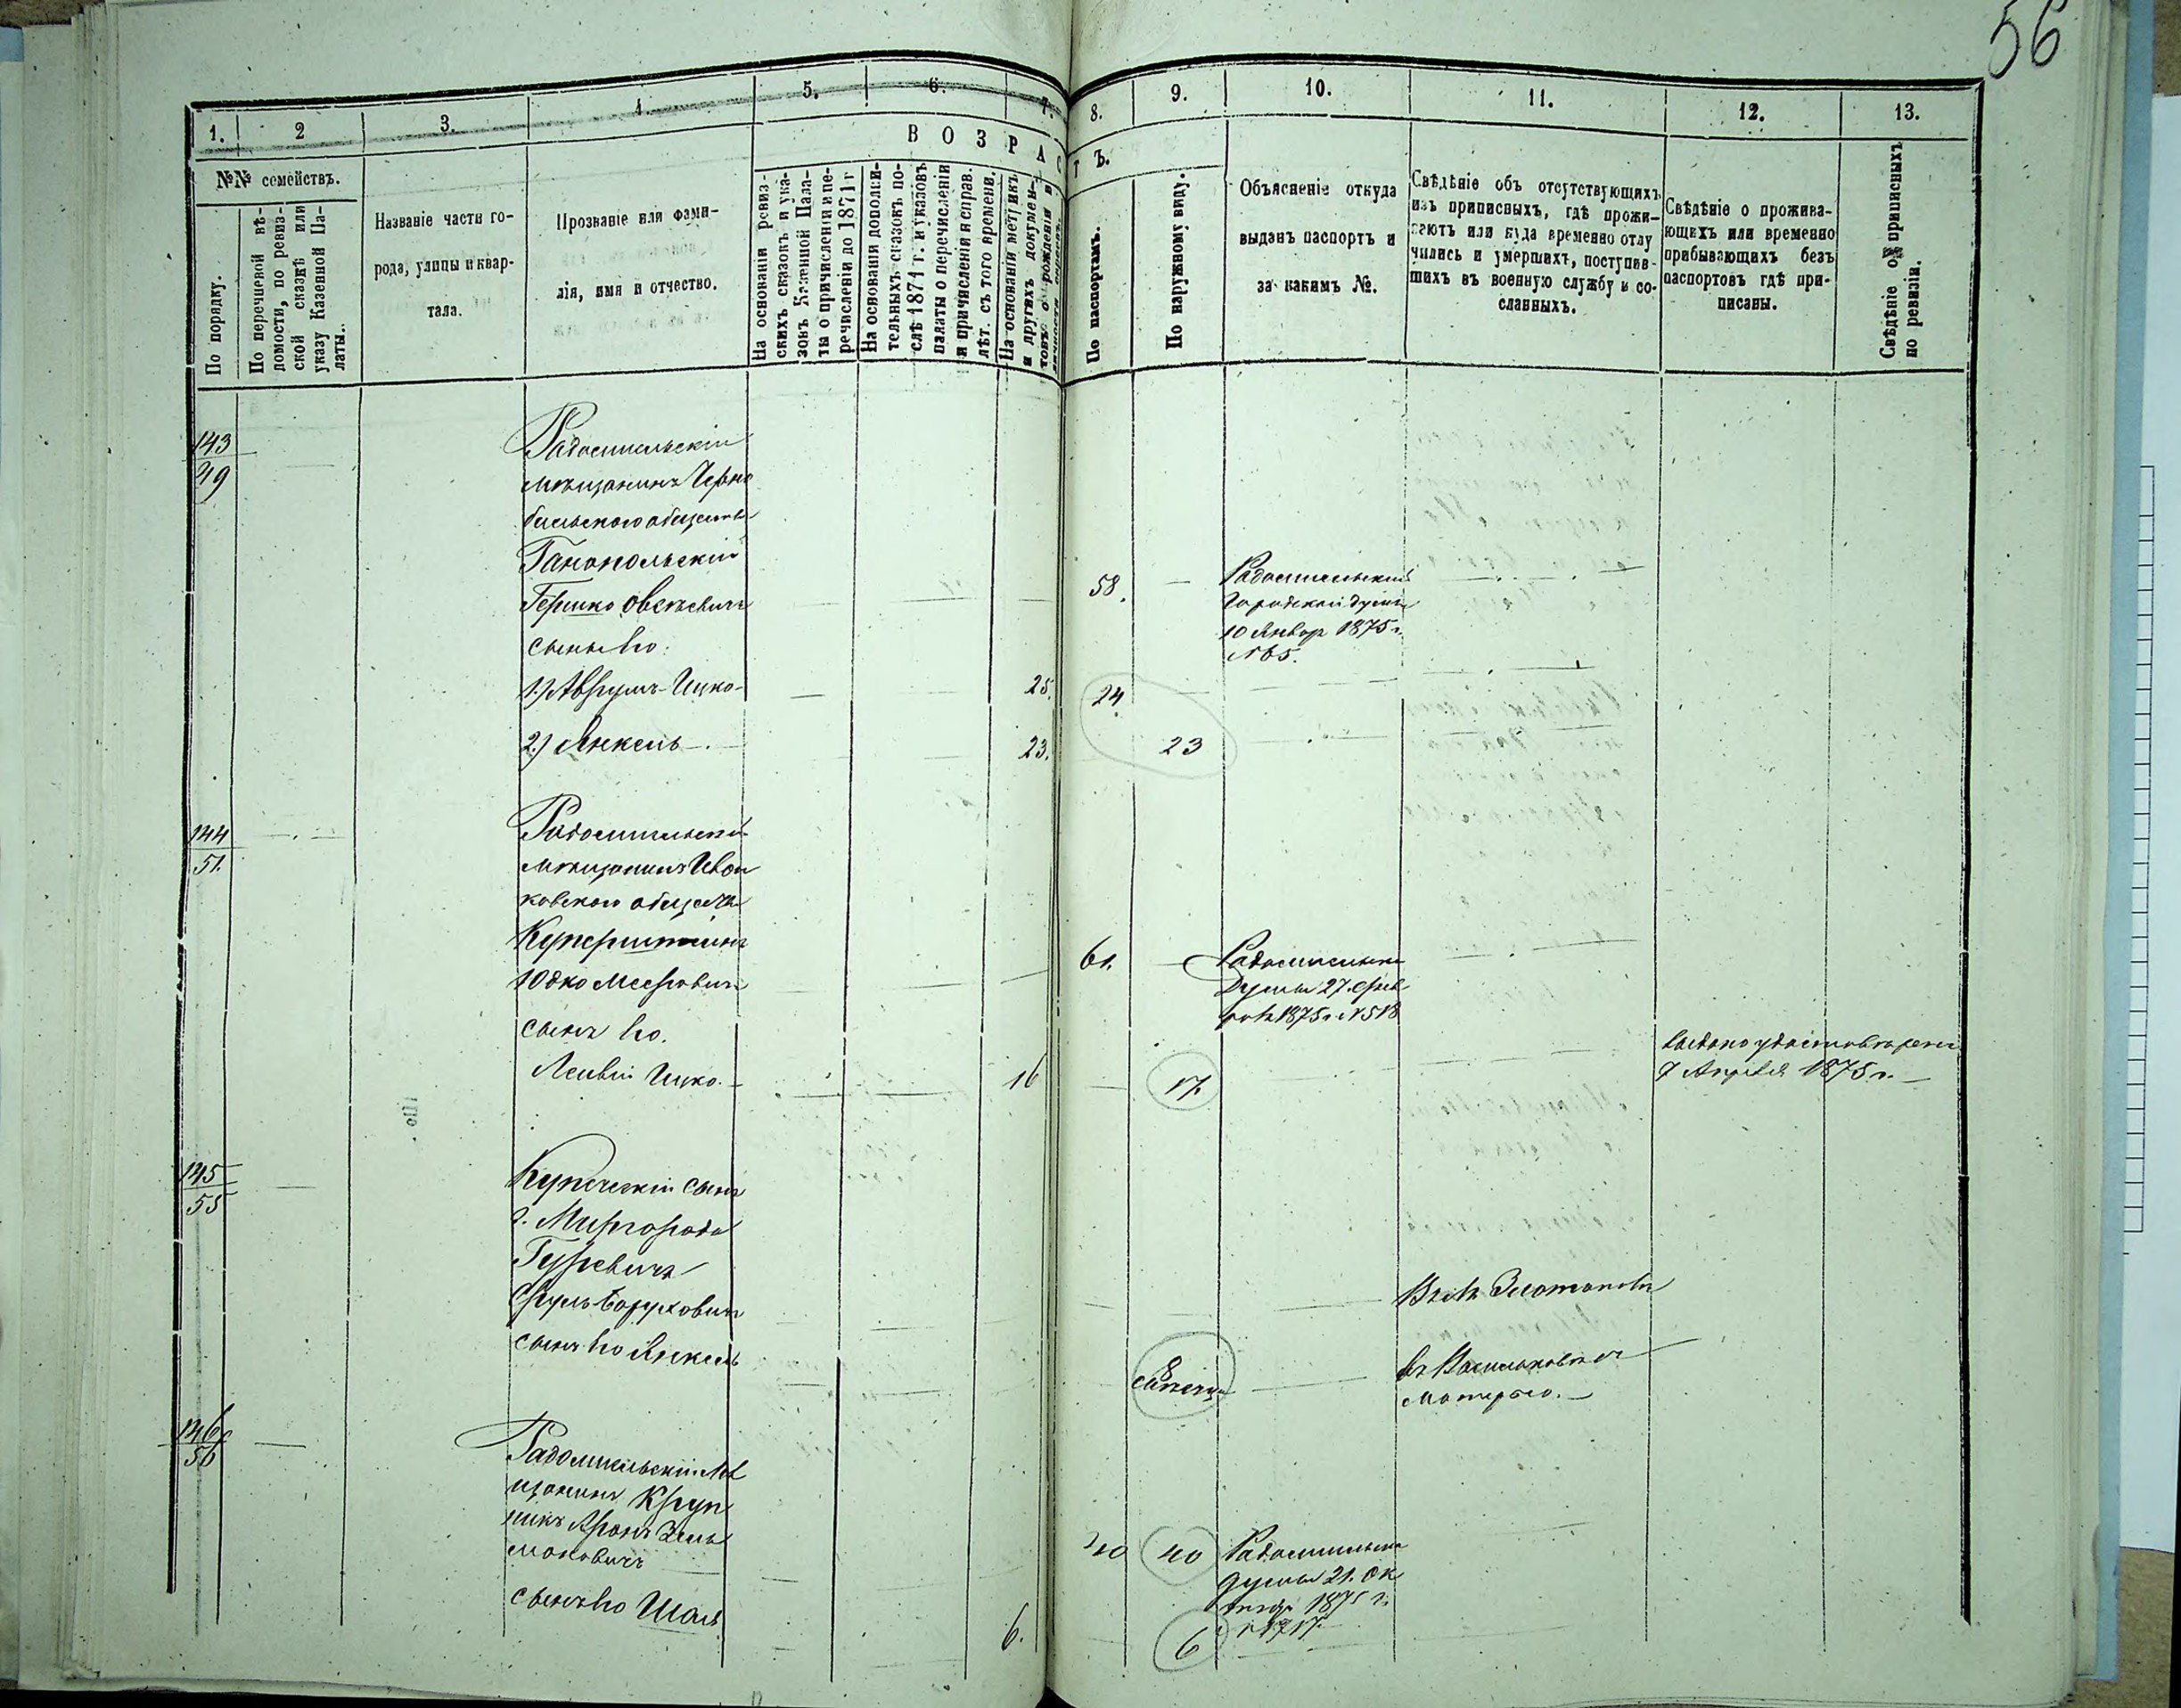 56
1.
2
3.
4.
5.
6.
7.
8.
9.
10.
11.
12.
13.
ВОЗРАС
ТЪ.
№№ семействъ.
По порядку.
По перечневой вѣ-
домости, по ревиз-
ской сказкѣ или
указу Казенной Па-
латы.
Названіе части го-
рода, улицы и квар-
тала.
Прозваніе или фами-
лія, имя и отчество.
На основаніи ревиз-
скихъ сказокъ и ука-
зовъ Казенной Пала-
ты о причисленіи и пе-
речисленіи до 1871 г
На основаніи дополни-
тельныхъ сказокъ по-
слѣ 1871 г. и указовъ
палаты о перечисленіи
и причисленіи и справ.
лѣт. съ того времени.
На основаніи метрикъ
и другихъ докумен-
товъ о рожденіи и
По паспортамъ.
По наружному виду.
Объясненіе откуда
выданъ паспортъ и
за какимъ №.
Свѣдѣніе объ отсутствующихъ
изъ приписныхъ, гдѣ прожи-
ваютъ или куда временно отлу
чились и умершихъ, поступив-
шихъ въ военную службу и со-
сланныхъ.
Свѣдѣніе о прожива-
ющихъ или временно
прибывающихъ безъ
паспортовъ гдѣ при-
писаны.
Свѣдѣніе о приписныхъ
по ревизіи.
143
49
Радомысльскій
мѣщанинъ Черно
быльского обществ
Ганопольскій
Гершко Овсѣевичъ
58.
Радомысльской
Городской думы
10 Январ 1875 г.
№ 65.
сыны его:
1.) Аврумъ-Ицко
25.
24
2.) Янкель
23.
23
144
51.
Радомысльскій
мѣщанинъ Иван
ковского обществ
Куперштеинъ
Юдко Мееровичъ
61.
Радомысльск
Думы 27. Фев
1875 г. № 518
сынъ его.
Лейвій Ицко.
16
17.
выдано удостовѣрен
7 Апрѣля 1875 г.
145
55
Купеческій сынъ
г. Миргорода
Гуревичъ
Сруль Боруховичъ
Златополь
сынъ его Янкель
8
въ Васильковѣ съ
матерью.
146
56
Радомысльскій мѣ
щанинъ Круп
никъ Аронъ Зель
мановичъ
40
40
Радомысльск
думы 21. Ок
тяб. 1875 г.
сынъ его Шая
6.
6